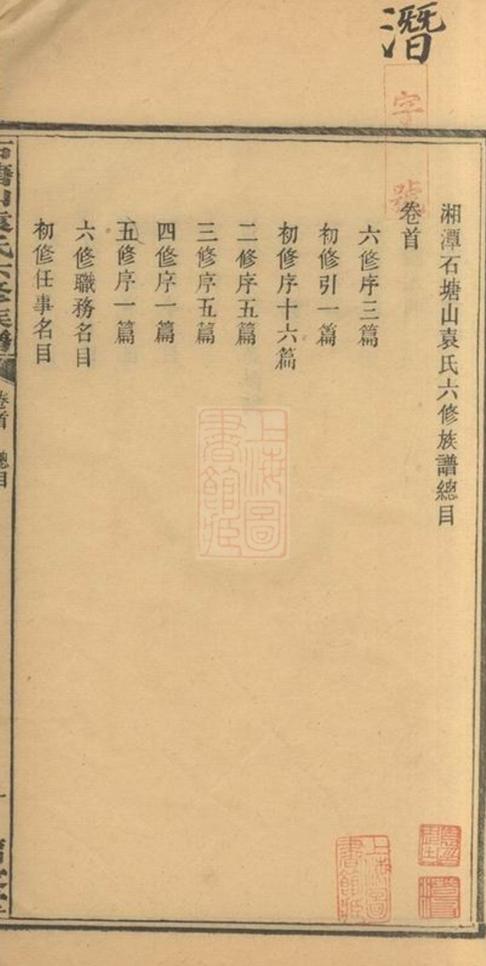 潛
字號
湘潭石塘山袁氏六修族譜總目
卷首
六修序三篇
初修引一篇
初修序十六篇
二修序五篇
三修序五篇
四修序一篇
五修序一篇
六修職務名目
初修任事名目
卷首 總目
上海圖書館藏
上海圖書館藏